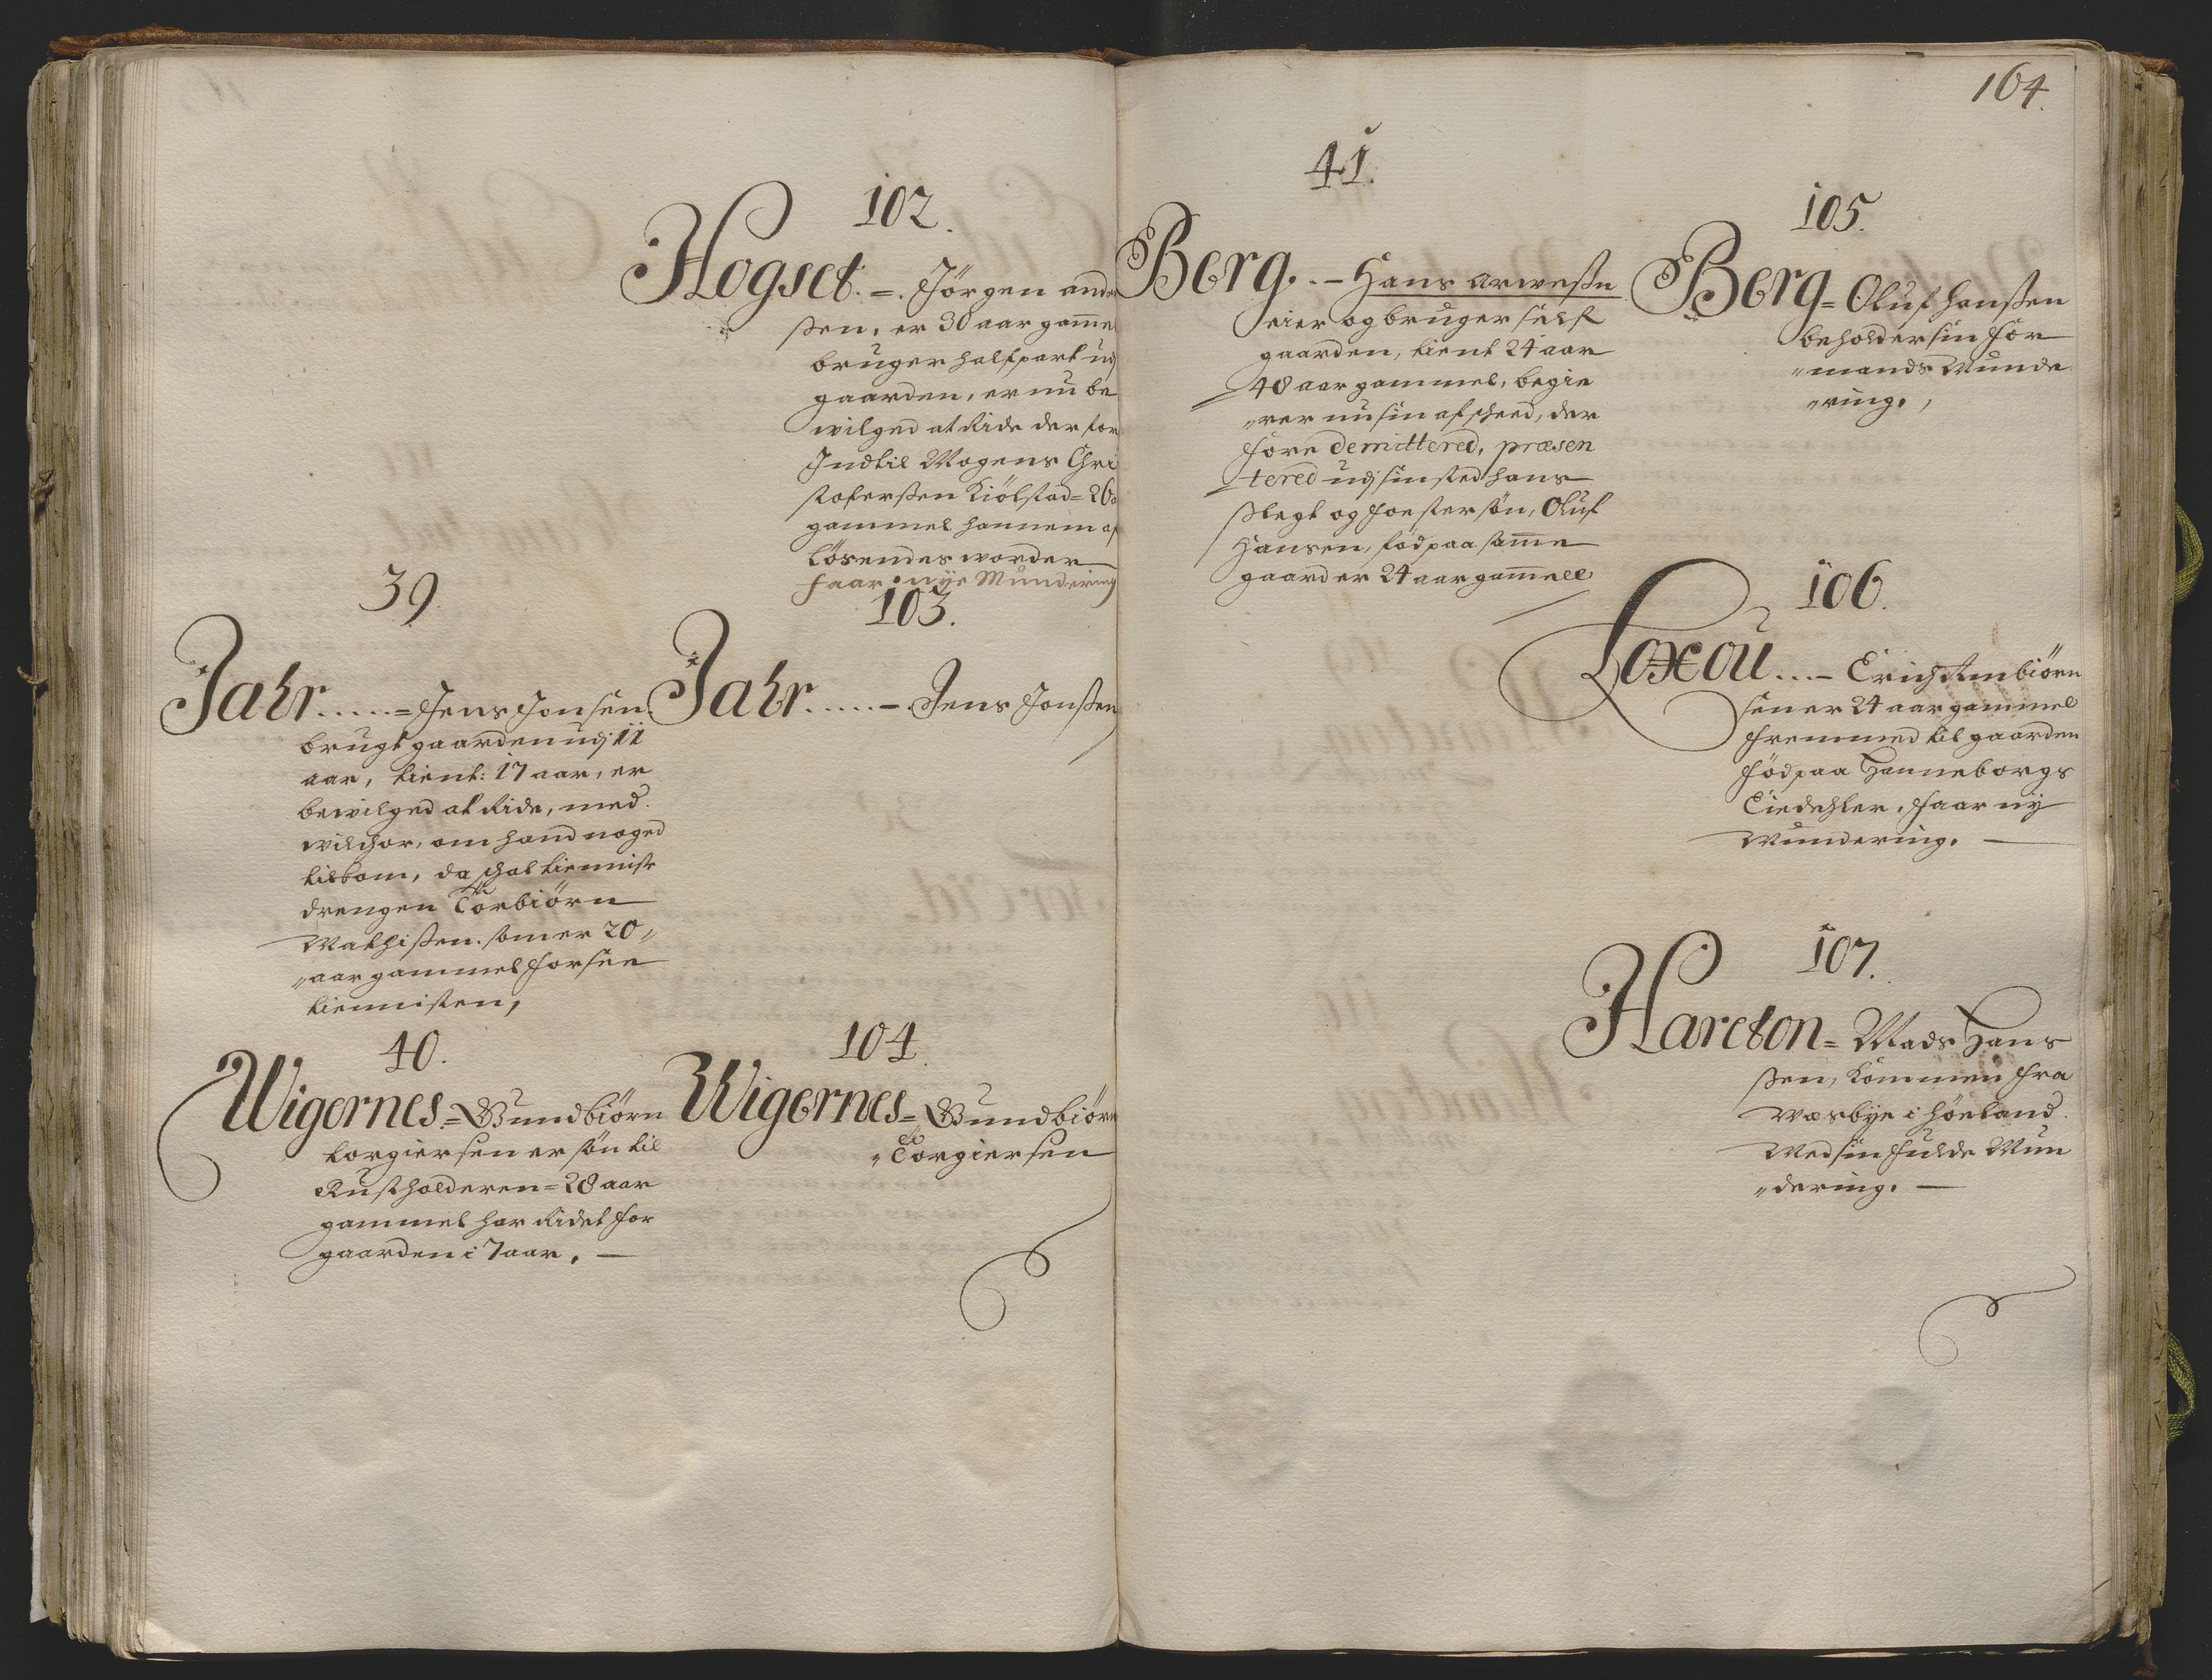 102.
Hogset.=. Jörgen ande
ßen, er 30 aar gam̄e
bruger halfpart udj
gaarden, er nu be
wilged at Ride der for
Indtil Mogens Chri
stoferßen Kiölstad= 26 a
gammel hannem af
lösendes worder
faar nÿe Mundering
39.
Jahr.....=Jens Jonsen.
brugt gaarden udj 11
aar, tient: 17 aar, er
bewilged at Ride, med
wilchor, om hand noged
tilkom, da schal tienniste
drengen Torbiörn
Mathißen. som er 20„
„aar gammel forsee
tiennisten,
103.
Jahr.....–. Jens Jonßen
40.
Wigernes.=Gundbiörn
torgiersen er sön til
Rustholderen=28 aar
gammel har Ridet for
gaarden i 7 aar. —
104.
Wigernes=Gundbiörn
„Torgiersen
164.
41.
Berg..–Hans arweßn
eier og bruger self
gaarden, tient 24 aar
48 aar gammel, begie
„rer nu sin afscheed, der
fore demittered, præsen
tered udj sin sted hans
Slegt og foester sön, Oluf
Hansen, föd paa sam̄e
gaard er 24 aar gam̄ell
105.
Berg=Oluf Hanßen
beholder sin for
„mands Munde
„ring.,
106.
Loxou...–Erich Ambiörn
sen er 24 aar gammel
fremmed til gaarden
föd paa Hanneborgs
Eiedehler, faar nÿ
Mundering. —
107.
Harcton=Mads Hans
ßen, kommen fra
Masbÿe i Höeland.
Med sin fulde Mun
„dering. —